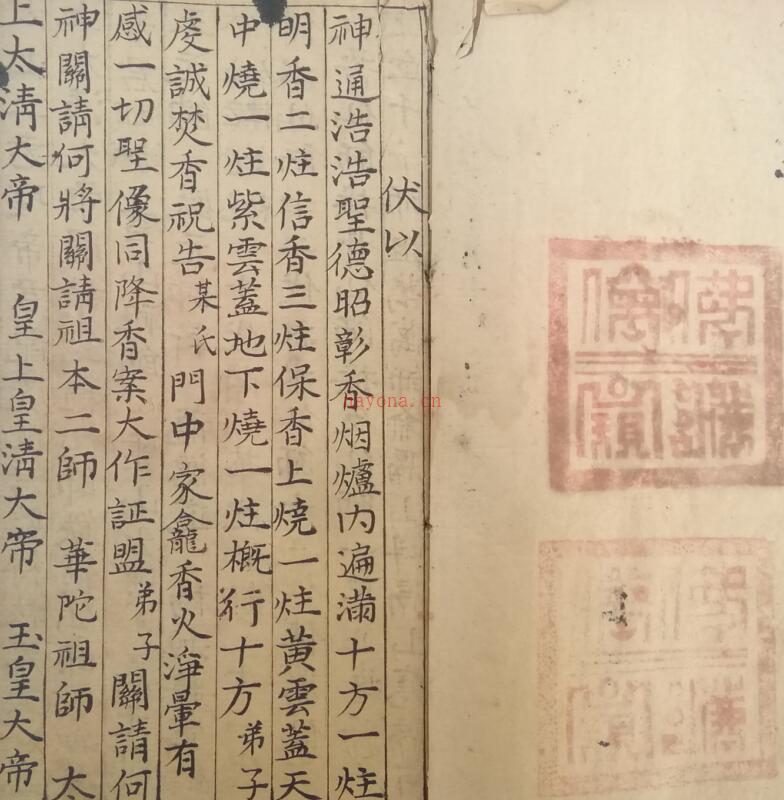 伏以
神通浩浩聖德昭彰香烟爐内遍滿十方一炷
明香二炷信香三炷保香上燒一炷黃雲蓋天
中燒一炷紫雲蓋地下燒一炷概行十方弟子
虔誠焚香祝告某氏門中家龕香火淨暈有
感一切聖像同降香案大作証盟弟子關請何
神關請何將關請祖本二師 華陀祖師 太
上太淸大帝 皇上皇淸大帝 玉皇大帝
nayona.cn